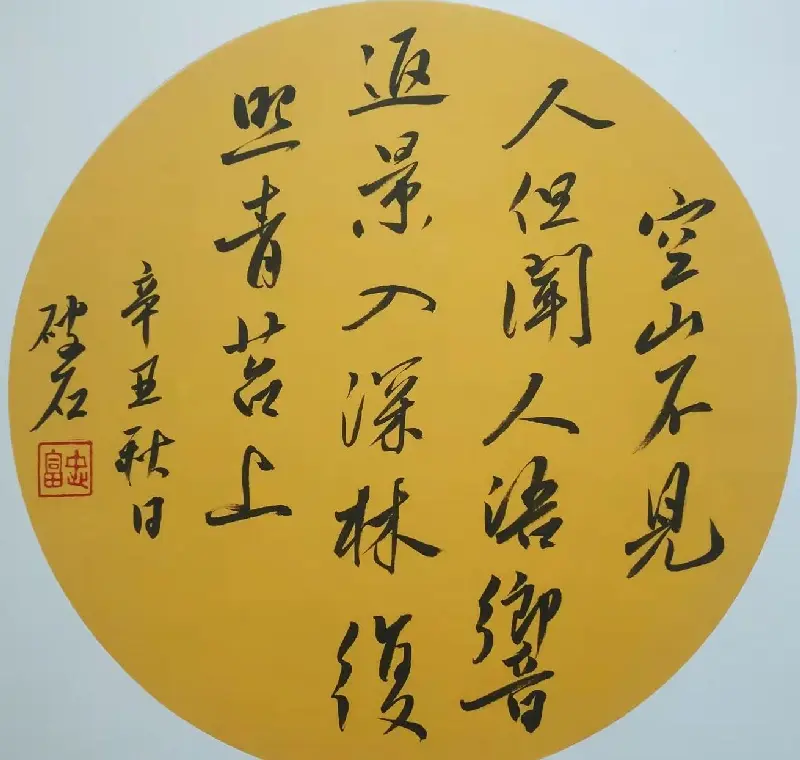 空山不見
人但聞人語響
返景入深林復
照青苔上
辛丑秋日
破石
忠富